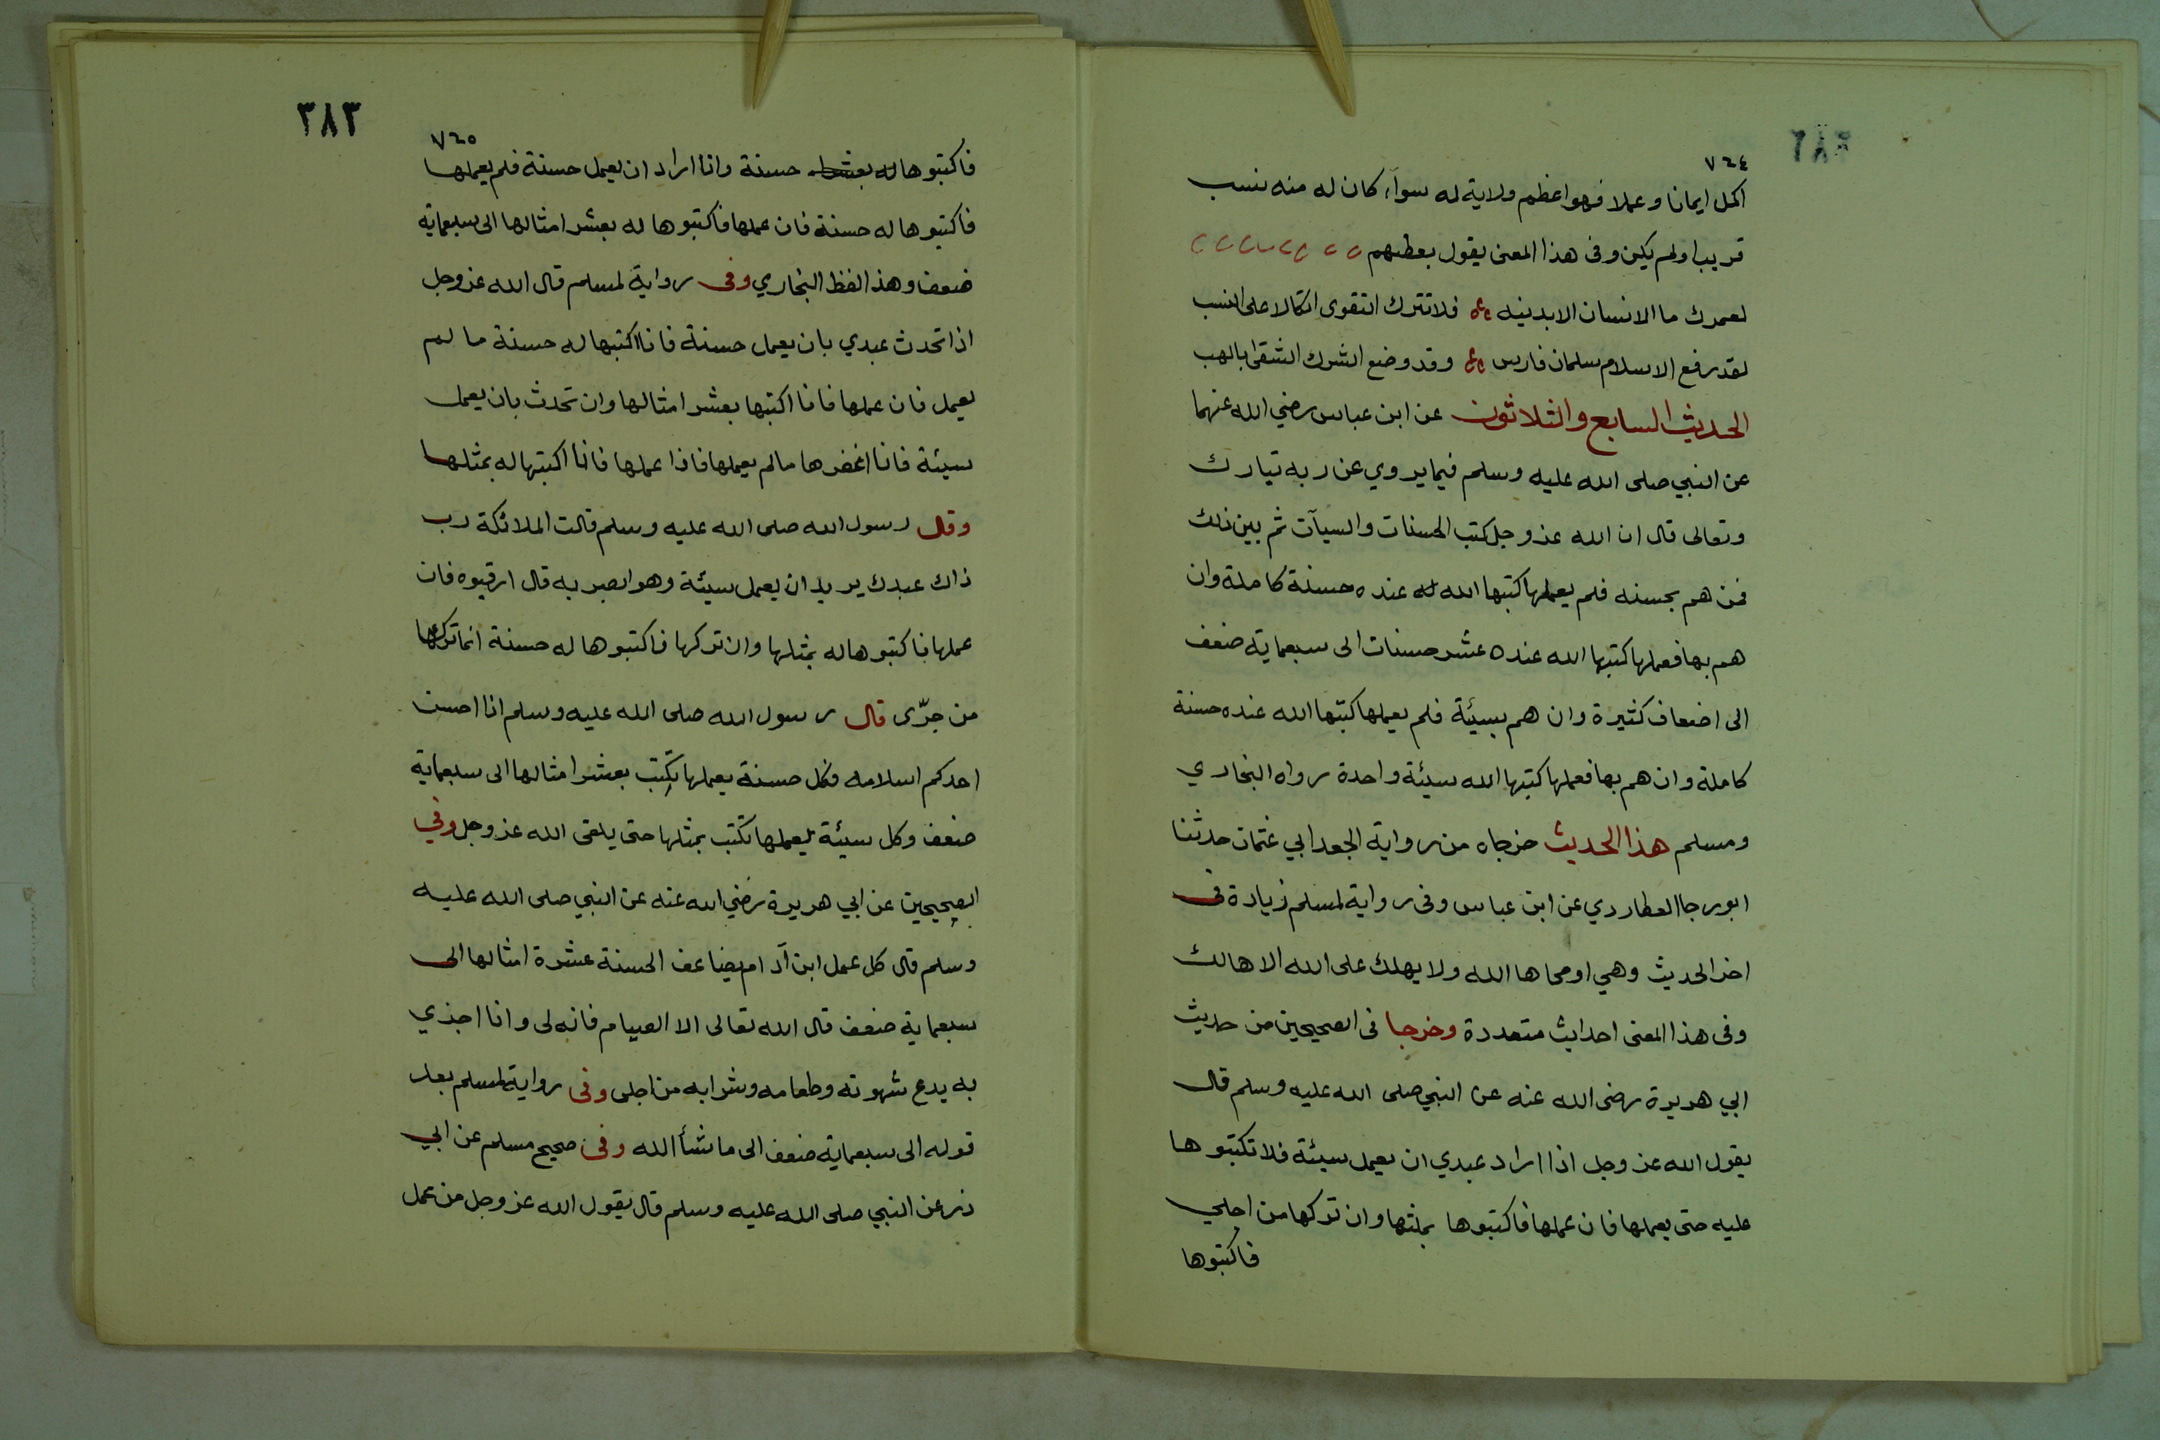 ٧٦٤
اكمل ايمانا وعملا فهو اعظم ولاية له سوآء كان له منه نسب
قريب اولم يكن وفى هذا المعنى يقول بعضهم
لعمرك ما الانسان الا بدينه فلا تترك التقوى اتكالا على النسب
لقد رفع الاسلام سلمان فارس وقد وضع الشرك الشقى ابا لهب
الحديث السابع والثلاثون عن ابن عباس رضي الله عنهما
عن النبي صلى الله عليه وسلم فيما يروي عن ربه تبارك
وتعالى قال ان الله عز وجل كتب الحسنات والسيآت ثم بين ذلك
فمن هم بحسنه فلم يعملها كتبها الله له عنده حسنة كاملة وان
هم بها فعملها كتبها الله عنده عشر حسنات الى سبعماية ضعف
الى اضعاف كثيرة وان هم بسيئة فلم يعملها كتبها الله عنده حسنة
كاملة وان هم بها فعملها كتبها الله سيئة واحدة رواه البخاري
ومسلم هذا الحديث خرجاه من رواية الجعد ابي عثمان حدثنا
ابو رجا العطاردي عن ابن عباس وفى رواية لمسلم زيادة فى
اخر الحديث وهي او محاها الله ولا يهلك على الله الا هالك
وفى هذا المعنى احاديث متعددة وخرجا فى الصحيحين من حديث
ابي هريرة رضى الله عنه عن النبي صلى الله عليه وسلم قال
يقول الله عز وجل اذا اراد عبدي ان يعمل سيئة فلا تكتبوها
عليه حتى يعملها فان عملها فاكتبوها بمثلها وان تركها من اجلي
فاكتبوها
٣٨٣
٧٦٥
فاكتبوها له حسنة واذا اراد ان يعمل حسنة فلم يعملها
فاكتبوها له حسنة فان عملها فاكتبوها له بعشر امثالها الى سبعماية
ضعف وهذا لفظ البخاري وفى رواية لمسلم قال الله عز وجل
اذا تحدث عبدي بان يعمل حسنة فانا اكتبها له حسنة ما لم
يعمل فان عملها فانا اكتبها بعشر امثالها وان تحدث بان يعمل
سيئة فانا اغفرها مالم يعملها فاذا عملها فانا اكتبها له بمثلها
وقال رسول الله صلى الله عليه وسلم قالت الملائكة رب
ذاك عبدك يريد ان يعمل سيئة وهو ابصر به قال ارقبوه فان
عملها فاكتبوها له بمثلها وان تركها فاكتبوها له حسنة انما تركها
من جرّى قال رسول الله صلى الله عليه وسلم اذا احسن
احدكم اسلامه فكل حسنة يعملها تكتب بعشر امثالها الى سبعماية
ضعف وكل سيئة يعملها تكتب بمثلها حتى يلقى الله عز وجل وفي
الصحيحين عن ابي هريرة رضي الله عنه عن النبي صلى الله عليه
وسلم قال كل عمل ابن آدام يضاعف الحسنة عشرة امثالها الى
سبعماية ضعف قال الله تعالى الا الصيام فانه لى وانا اجزي
به يدع شهوته وطعامه وشرابه من اجلى وفى رواية لمسلم بعد
قوله الى سبعماية ضعف الى ما شأ الله وفى صحيح مسلم عن ابي
ذر عن النبي صلى الله عليه وسلم قال يقول الله عز وجل من عمل